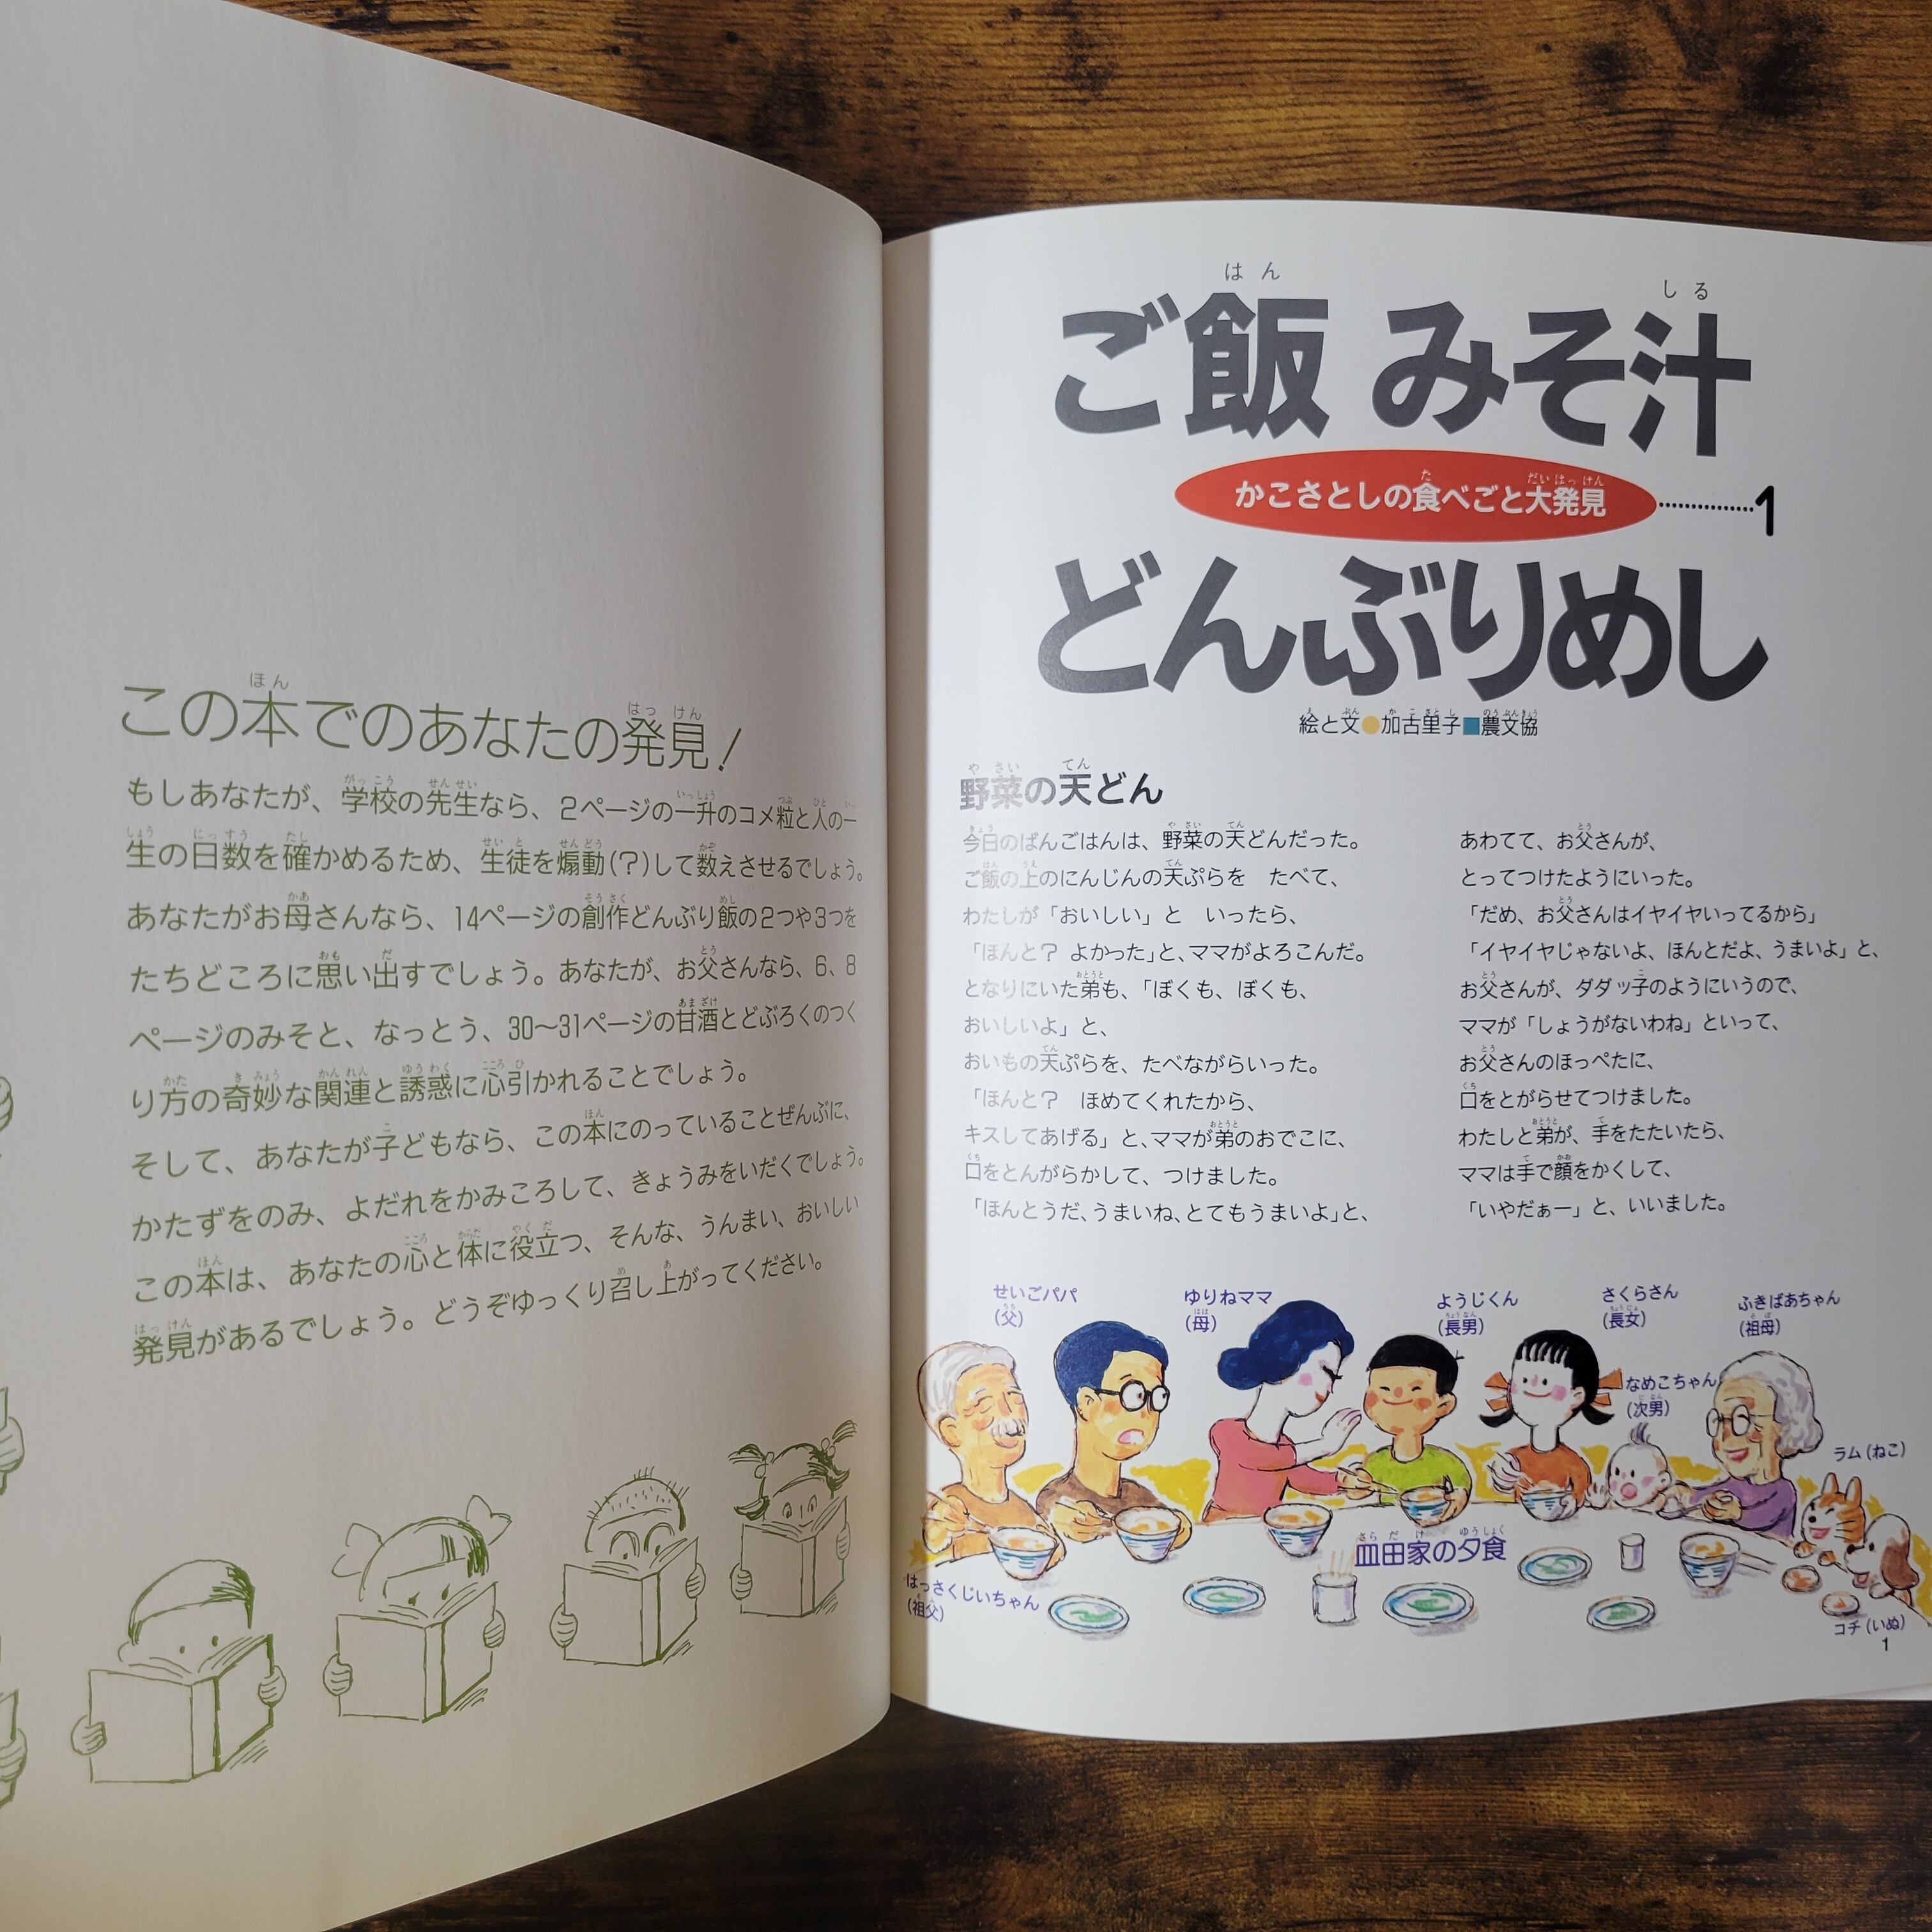 この本でのあなたの発見!
もしあなたが、学校の先生なら、2ページの一升のコメ粒と人の一
生の日数を確かめるため、生徒を煽動(?)して数えさせるでしょう。
あなたがお母さんなら、14ページの創作どんぶり飯の2つや3つを
たちどころに思い出すでしょう。あなたが、お父さんなら、6、8
ページのみそと、なっとう、30〜31ページの甘酒とどぶろくのつく
り方の奇妙な関連と誘惑に心引かれることでしょう。
そして、あなたが子どもなら、この本にのっていることぜんぶに、
かたずをのみ、よだれをかみころして、きょうみをいだくでしょう。
この本は、あなたの心と体に役立つ、そんな、うんまい、おいしい
発見があるでしょう。どうぞゆっくり召し上がってください。
ご飯 みそ汁
かこさとしの食べごと大発見……………1
どんぶりめし
絵と文●加古里子■農文協
野菜の天どん
今日のばんごはんは、野菜の天どんだった。
ご飯の上のにんじんの天ぷらを たべて、
わたしが「おいしい」と いったら、
「ほんと? よかった」と、ママがよろこんだ。
となりにいた弟も、「ぼくも、ぼくも、
おいしいよ」と、
おいもの天ぷらを、たべながらいった。
「ほんと? ほめてくれたから、
キスしてあげる」と、ママが弟のおでこに、
口をとんがらかして、つけました。
「ほんとうだ、うまいね、とてもうまいよ」と、
あわてて、お父さんが、
とってつけたようにいった。
「だめ、お父さんはイヤイヤいってるから」
「イヤイヤじゃないよ、ほんとだよ、うまいよ」と、
お父さんが、ダダッ子のようにいうので、
ママが「しょうがないわね」といって、
お父さんのほっぺたに、
口をとがらせてつけました。
わたしと弟が、手をたたいたら、
ママは手で顔をかくして、
「いやだぁー」と、いいました。
せいごパパ
(父)
ゆりねママ
(母)
ようじくん
(長男)
さくらさん
(長女)
ふきばあちゃん
(祖母)
なめこちゃん
(次男)
ラム(ねこ)
皿田家の夕食
はっさくじいちゃん
(祖父)
コチ(いぬ)
1